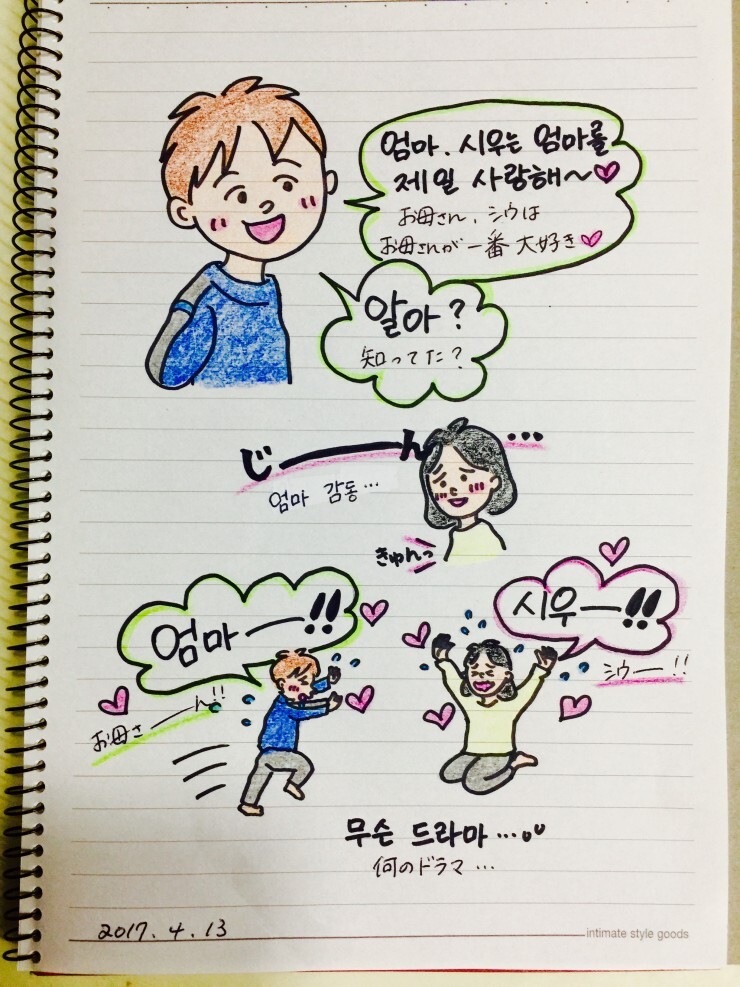 엄마. 시우는 엄마를
제일 사랑해~
お母さん、シウは
お母さんが一番大好き
알아?
知ってた?
じーーん…
엄마 감동…
きゅんっ
엄마ーー!!
お母さーーん!!
시우ー!!
シウー!!
무슨 드라마…
何のドラマ…
2017. 4. 13
intimate style goods